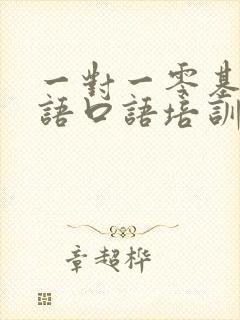 一對一零基
語口語培訓
章超桦